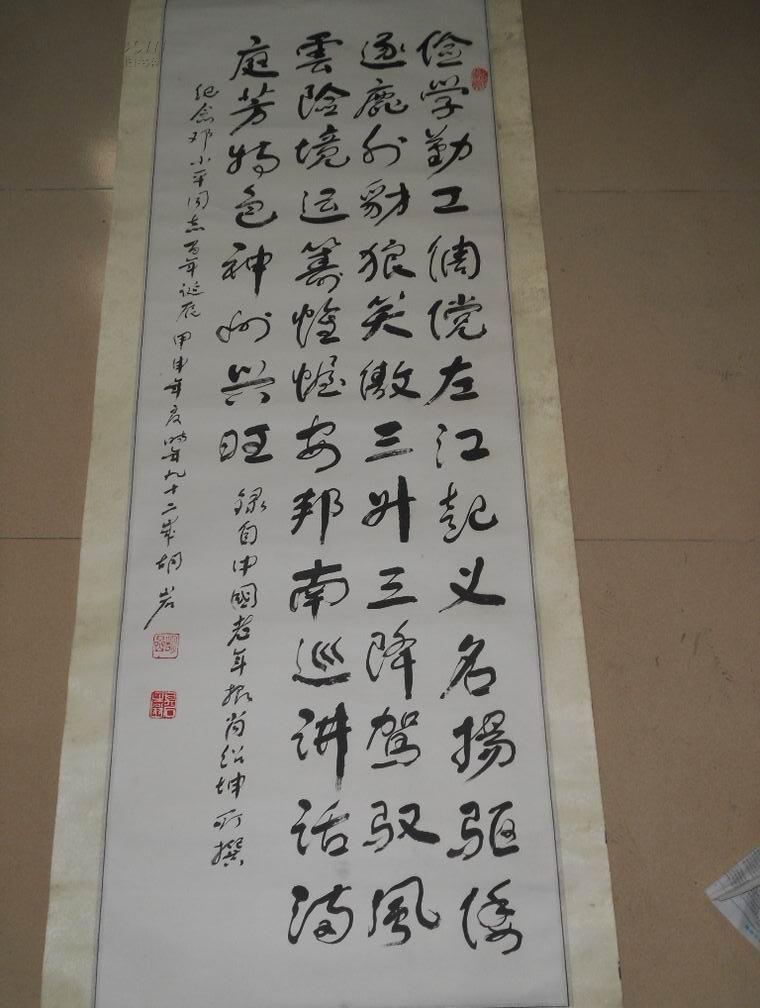 俭学勤工倜傥左江起义名揚驱倭
逐鹿豺狼笑傲三升三降驾驭風
雲险境运籌帷幄安邦南巡讲话满
庭芳特色神州兴旺
録自中國老年报尚绍坤所撰
纪念邓小平同志百年诞辰 甲申年夏時年九十二岁胡岩